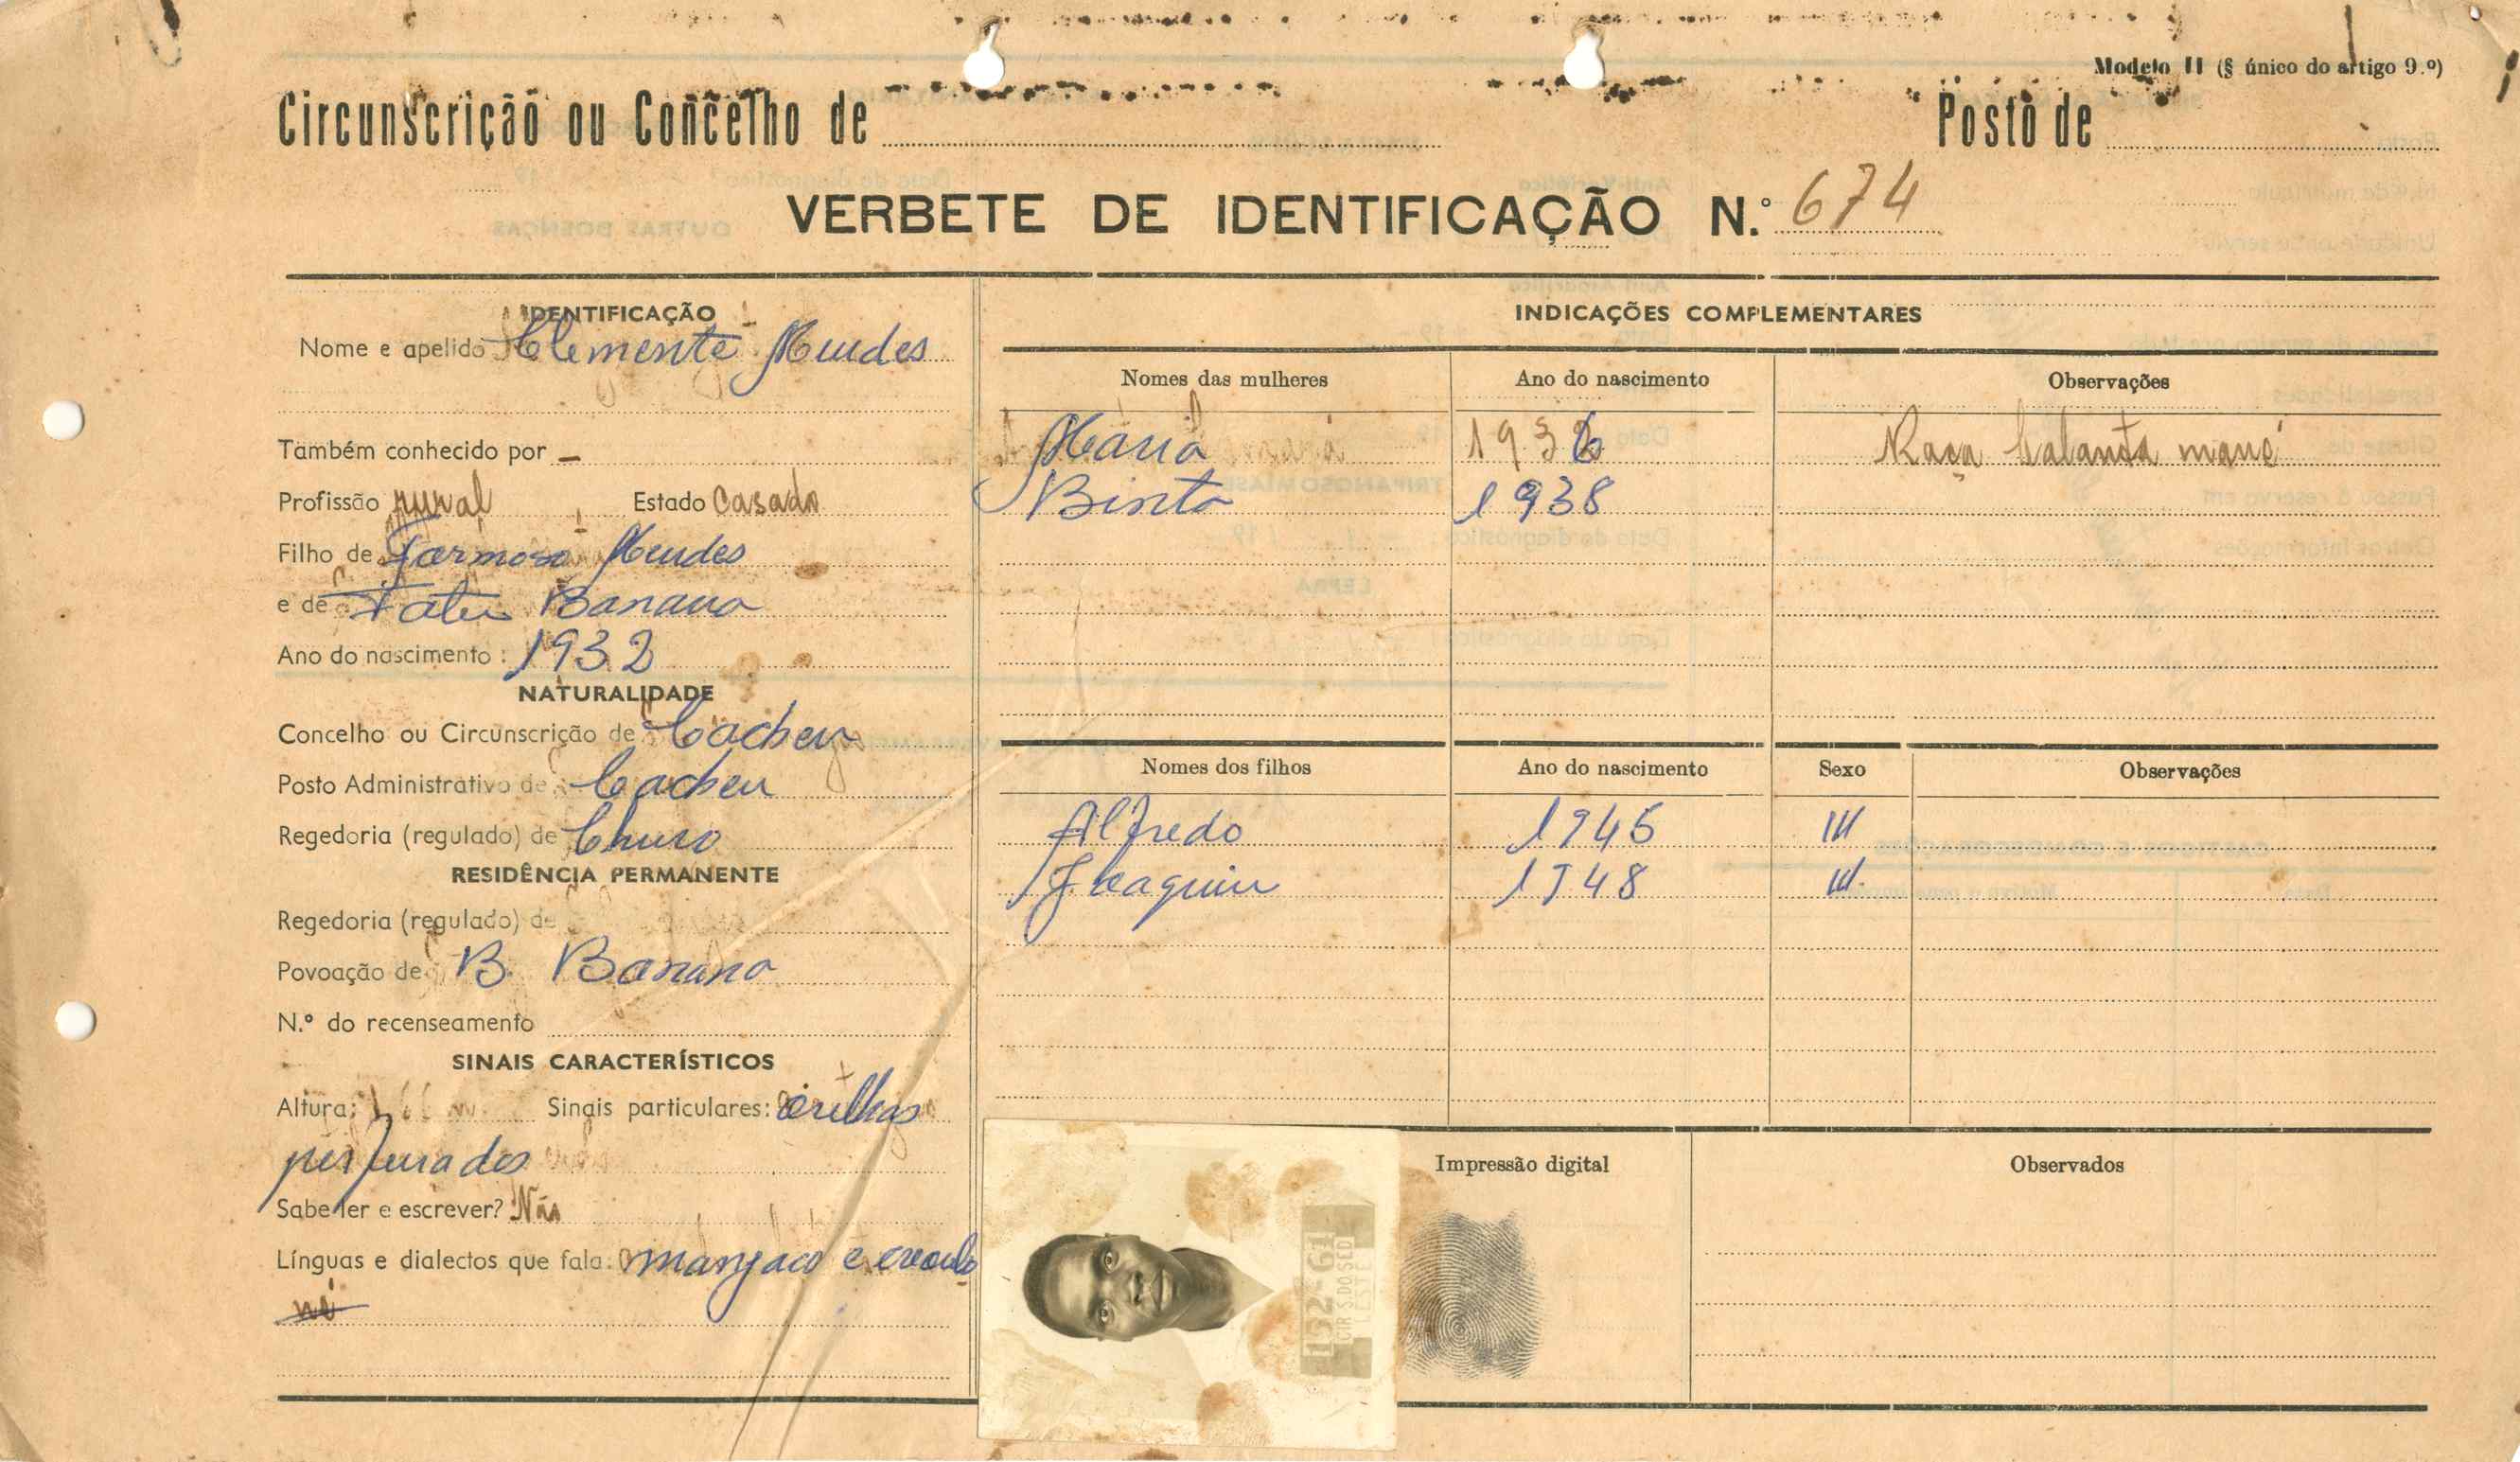 Modelo II (§ único do artigo 9.º)
Circunscrição ou Concelho de
Posto de
VERBETE DE IDENTIFICAÇÃO N.º 674
IDENTIFICAÇÃO
Nome e apelido Clemente Mendes
Também conhecido por —
Profissão rural Estado Casado
Filho de Formoso Mendes
e de Fatu Banana
Ano do nascimento: 1932
NATURALIDADE
Concelho ou Circunscrição de Cacheu
Posto Administrativo de Cacheu
Regedoria (regulado) de Churo
RESIDÊNCIA PERMANENTE
Regedoria (regulado) de
Povoação de B. Banana
N.º do recenseamento
SINAIS CARACTERÍSTICOS
Altura: Sinais particulares: orelhas
perfurados
Sabe ler e escrever? Não
Línguas e dialectos que fala: manjaco e crioulo
né
INDICAÇÕES COMPLEMENTARES
Nomes das mulheres Ano do nascimento Observações
Maria 1936 Raça balanta mané
Binta 1938
Nomes dos filhos Ano do nascimento Sexo Observações
Alfredo 1945 M
Joaquim 1948 M
152-61
CIR S DO SED
LESTE
Impressão digital
Observados